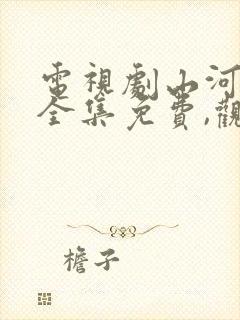 電視劇山河
全集免費,觀
檐子